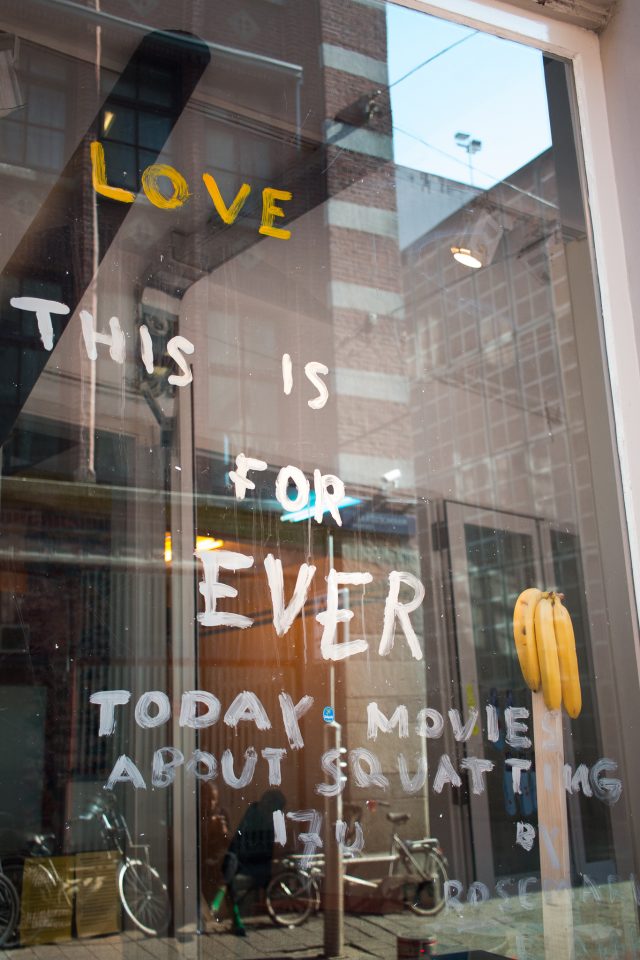 LOVE
THIS IS
FOR
EVER
TODAY MOVIES
ABOUT SQUATTING
17U BY